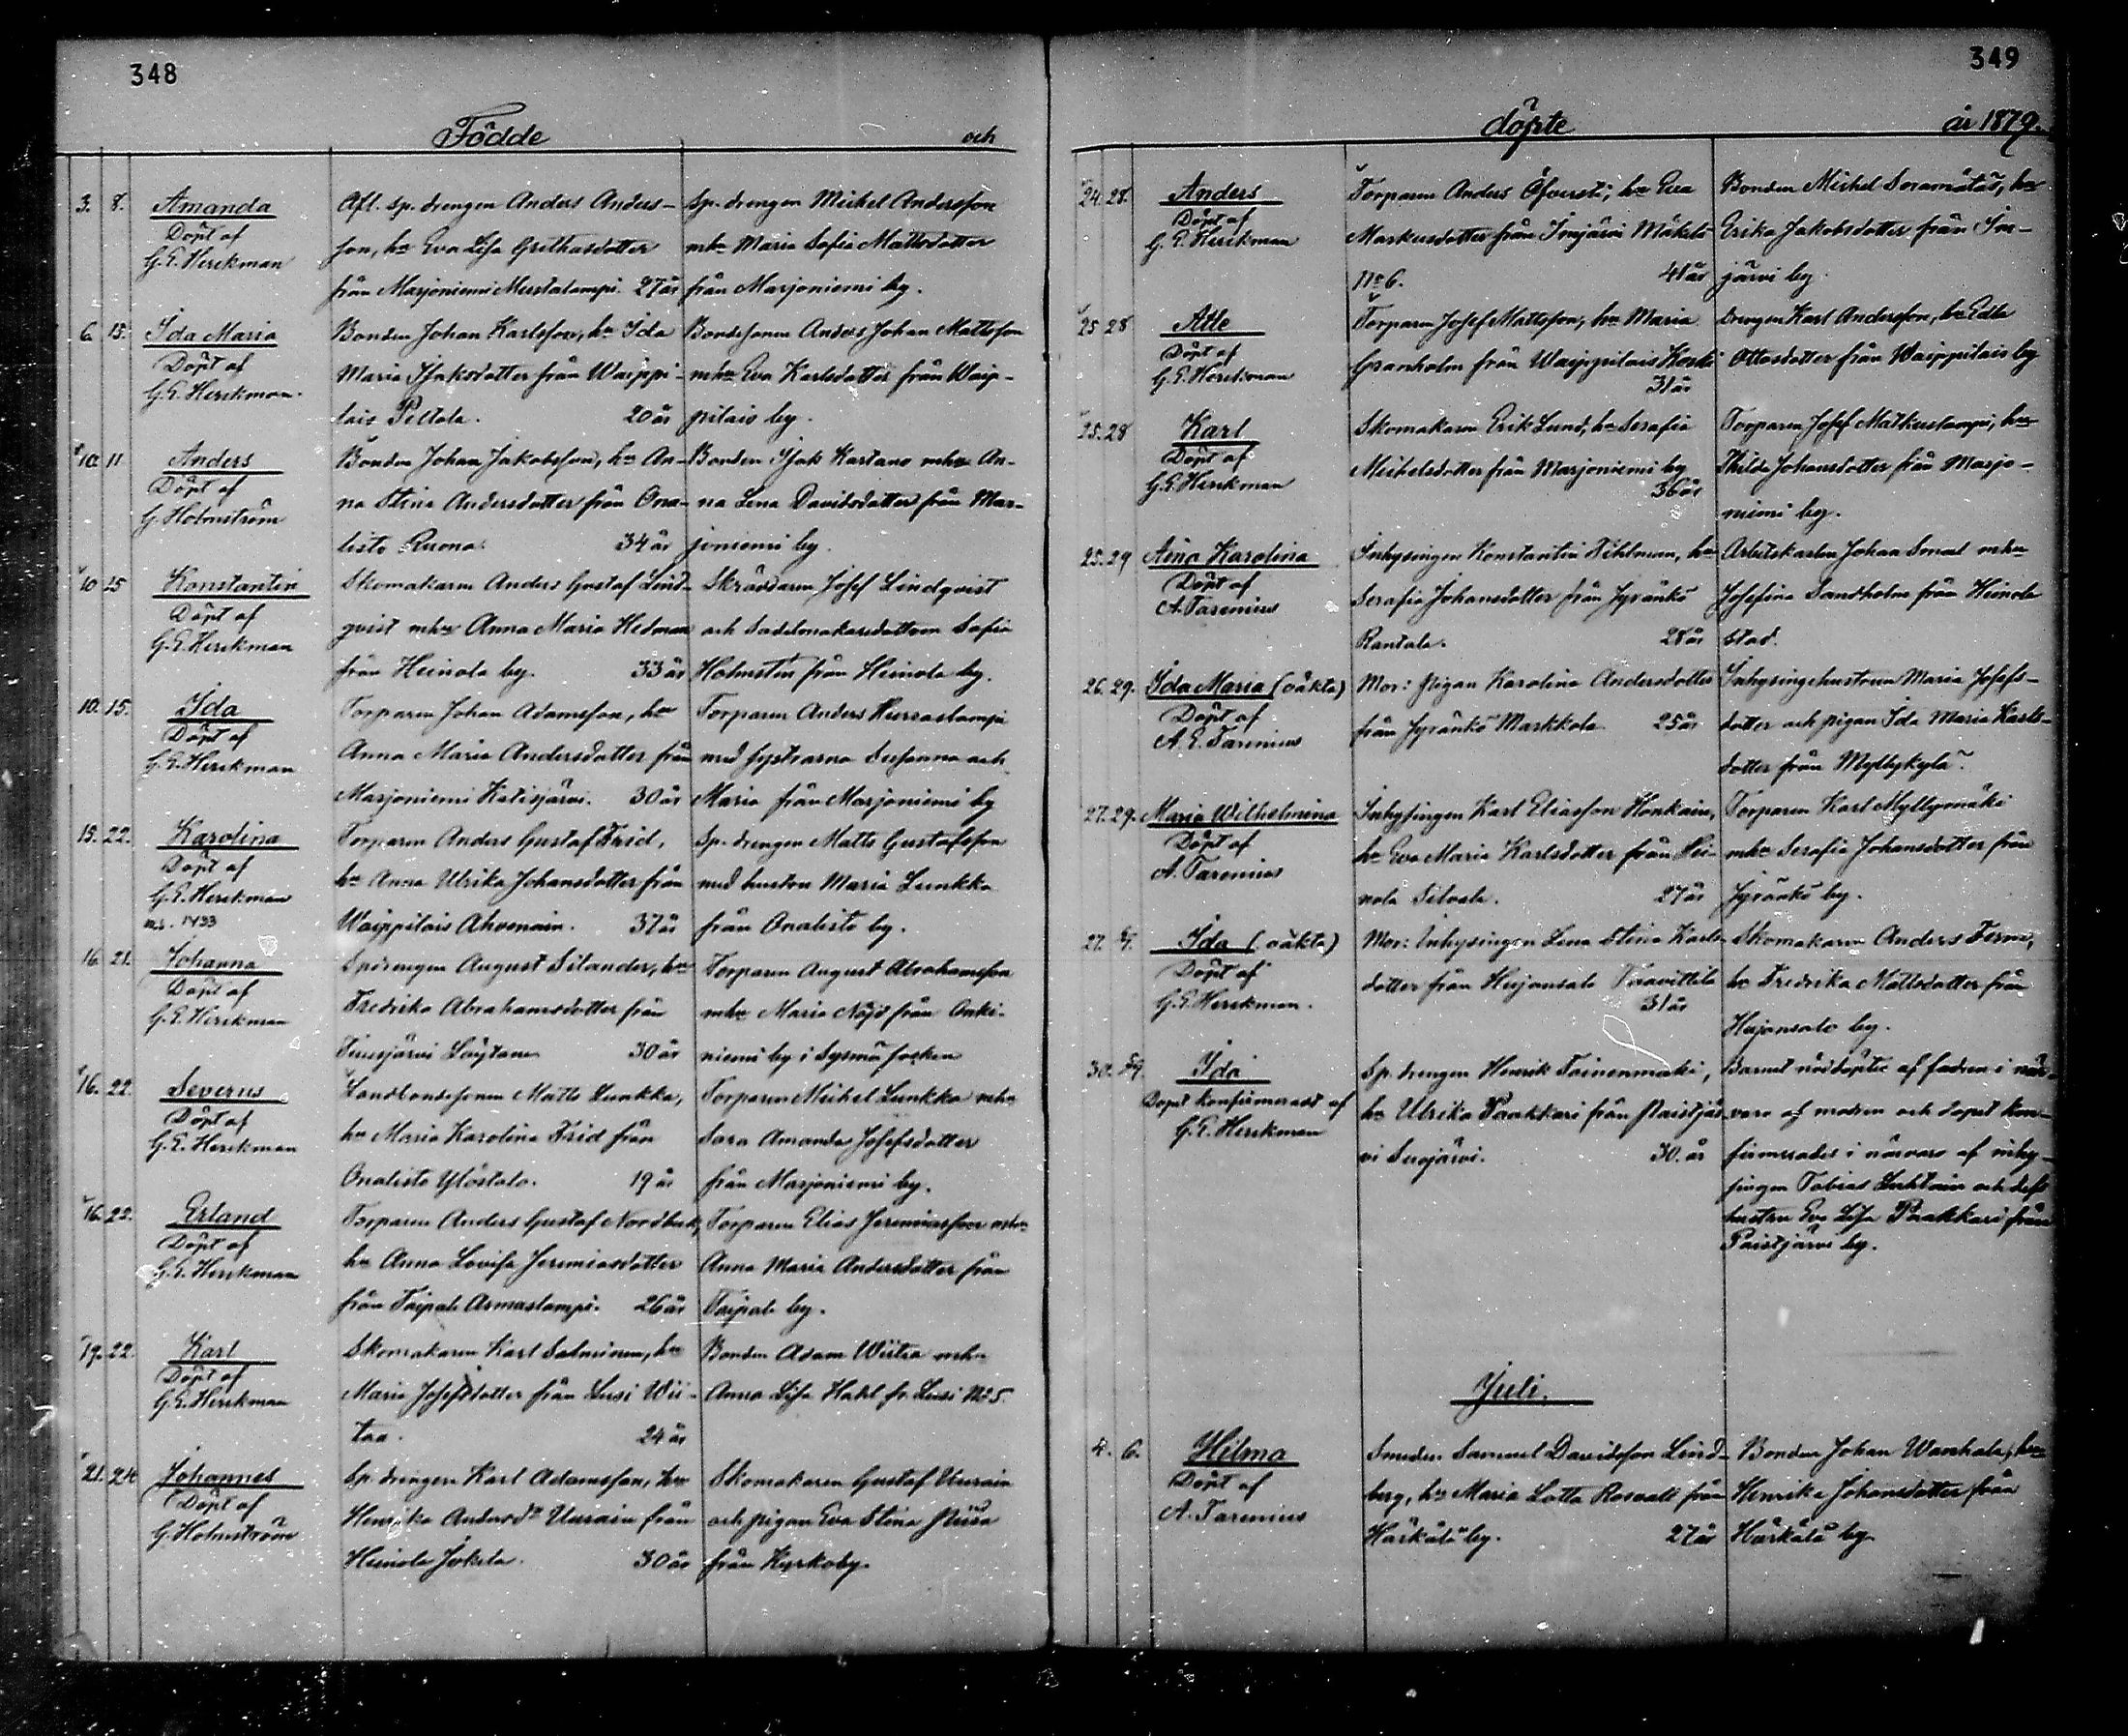 348
Födde och
3. 8. Amanda
Döpt af
G. E. Herckman
Afl. sp. drengen Anders Anders-
son, h:u Eva Lisa Grethasdotter
från Marjoniemi Mustalampi. 27 år
Sp. drengen Michel Andersson
mhu Maria Sofia Mattsdotter
från Marjoniemi by.
6. 15. Ida Maria
Döpt af
G. E. Herckman.
Bonden Johan Karlsson, hu Ida
Maria Isaksdotter från Waippi-
lais Peltola. 20 år
Bondesonen Anders Johan Mattsson
mhu Eva Karlsdotter från Waip-
pilais by.
10. 11 Anders
Döpt af
G. Holmström
Bonden Johan Jakobsson, hu An-
na Stina Andersdotter från Ona-
listo Ruona. 34 år
Bonden Isak Kartano mhu An-
na Lena Davidsdotter från Mar-
joniemi by.
10 15 Konstantin
Döpt af
G. E. Herckman
Skomakaren Anders Gustaf Lind-
qvist mhu Anna Maria Hedman
från Heinola by. 33 år
Skräddaren Josef Lindqvist
och Sadelmakaredottren Sofia
Holmstén från Heinola by.
10. 15. Ida
Döpt af
G. E. Herckman
Torparen Johan Adamsson, hu
Anna Maria Andersdotter från
Marjoniemi Katisjärvi. 30 år
Torparen Anders
med systrarna Susanna och
Maria från Marjoniemi by
15. 22. Karolina
Döpt af
G. E. Herckman
1433
Torparen Anders Gustaf Frid,
hu Anna Ulrika Johansdotter från
Waippilais Ahvenain. 37 år
Sp. drengen Matts Gustafsson
med hustru Maria Lunkka
från Onalisto by.
16. 21. Johanna
Döpt af
G. E. Herckman
Spdrengen August Silander, hu
Fredrika Abrahamsdotter från
Imjärvi Löytäne 30 år
Torparen August Abrahamsson
mhu Maria Nöjd från Onki-
niemi by i Sysmä socken
16. 22. Severus
Döpt af
G. E. Herckman
Landbondesonen Matts Lunkka,
hu Maria Karolina Frid från
Onalisto Ylöstalo. 19 år
Torparen Michel Lunkka mhu
Sara Amanda Josefsdotter
från Marjoniemi by.
16. 22. Erland
Döpt af
G. E. Herckman
Torparen Anders Gustaf Nordbeck,
hu Anna Lovisa Jeremiasdotter
från Taipale Armaslampi. 26 år
Torparen Elias Jeremiasson mhu
Anna Maria Andersdotter från
Taipale by.
19. 22. Karl
Döpt af
G. E. Herckman
Skomakaren Karl Salminen, hu
Maria Josefsdotter från Lusi Wii-
taa. 24 år
Bonden Adam Wiitaa mhu
Anna Lisa Hakl fr. Lusi No 5.
21. 24 Johannes
Döpt af
G. Holmström
Sp. drengen Karl Adamsson, hu
Henrika Andersdr Uusain från
Heinola Jokela. 30 år
Skomakaren Gustaf Uusain
och pigan Eva Stina
från Kyrkoby.
349
döpte år 1879.
24. 28. Anders
Döpt af
G. E. Herckman
Torparen Anders Öfversti, hu Eva
Markusdotter från Imjärvi Mäkelä
No 6. 41 år
Bonden Michel Soramäta, hu
Erika Jakobsdotter från Im-
järvi by.
25 28 Atle
Döpt af
G. E. Herckman
Torparen Josef Mattsson, hu Maria
Granholm från Waippilais Koski
31 år
Drengen Karl Andersson, hu Edla
Ottosdotter från Waippilais by
25. 28 Karl
Döpt af
G. E. Herckman
Skomakaren Erik Lund, hu Serafia
Michelsdotter från Marjoniemi by
36 år
Torparen Josef Matkuslampi, hu
Thilda Johansdotter från Marjo-
niemi by.
25. 29 Aina Karolina
Döpt af
A. Tarenius
Inhysingen Konstantin Fihlman, hu
Serafia Johansdotter från Jyränkö
Rantala. 28 år
Arbetskarlen Johan Smal mhu
Josefina Sandholm från Heinola
stad.
26. 29. Ida Maria (oäkta)
Döpt af
A. E. Tarenius
Mor: Pigan Karolina Andersdotter
från Jyränkö Markkola 25 år
Inhysingehustrun Maria Josefs-
dotter och pigan Ida Maria Karls-
dotter från Myllykylä.
27. 29. Maria Wilhelmina
Döpt af
A. Tarenius
Inhysingen Karl Eliasson Honkain,
hu Eva Maria Karlsdotter från Hei-
nola Silvola. 27 år
Torparen Karl Myllymäki
mhu Serafia Johansdotter från
Jyränkö by.
27. Ida (oäkta)
Döpt af
G. E. Herckman.
Mor: Inhysingen Lena Stina Karls-
dotter från Heijansalo Taavittila
31 år
Skomakaren Anders Ferm,
hu Fredrika Mattsdotter från
Heijansalo by.
30. Ida
Dopet konfirmeradt af
G. E. Herckman
Sp. drengen Henrik Toinenmaki,
hu Ulrika Paakkari från Paistjär-
vi Suojärvi. 30. år
Barnet nöddöpte af fadren i när-
varo af modren och dopet kon-
firmerades i närvaro af inhy-
singen Tobias Lahtain och dess
hustru Eva Lisa Paakkari från
Paistjärvi by.
Juli.
4. 6. Hilma
Döpt af
A. Tarenius
Smeden Samuel Davidsson Lind-
berg, hu Maria Lotta Rosvall från
Härkälä by. 27 år
Bonden Johan Wanhala, hu
Henrika Johansdotter från
Härkälä by